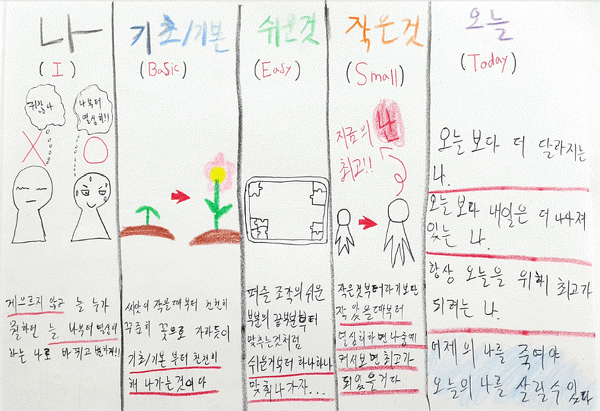 나
(I)
귀찮다
나부터
열심히!!
게으르지 않고 늘 누가
뭘하던 늘 나부터 열심히
하는 나로 바뀌고 변기!!
기초/기본
(Basic)
씨앗이 작을때부터 천천히
꾸준히 꽃으로 자라듯이
기초/기본 부터 천천히
해 나가는것이야
쉬운것
(Easy)
퍼즐 조각의 쉬운
부분의 끝부분부터
맞추는것처럼
쉬운거부터 하나하나
맞춰나가자...
작은것
(Small)
지금의 난
최고!!
작은것부터라기보단
작았을때부터
열심히하면 나중에
커서보면 최고가
되있을거다
오늘
(Today)
오늘 보다 더 달라지는
나.
오늘 보다 내일은 더 나아져
있는 나.
항상 오늘을 위해 최고가
되려는 나.
어제의 나를 죽여야
오늘의 나를 살릴수있다